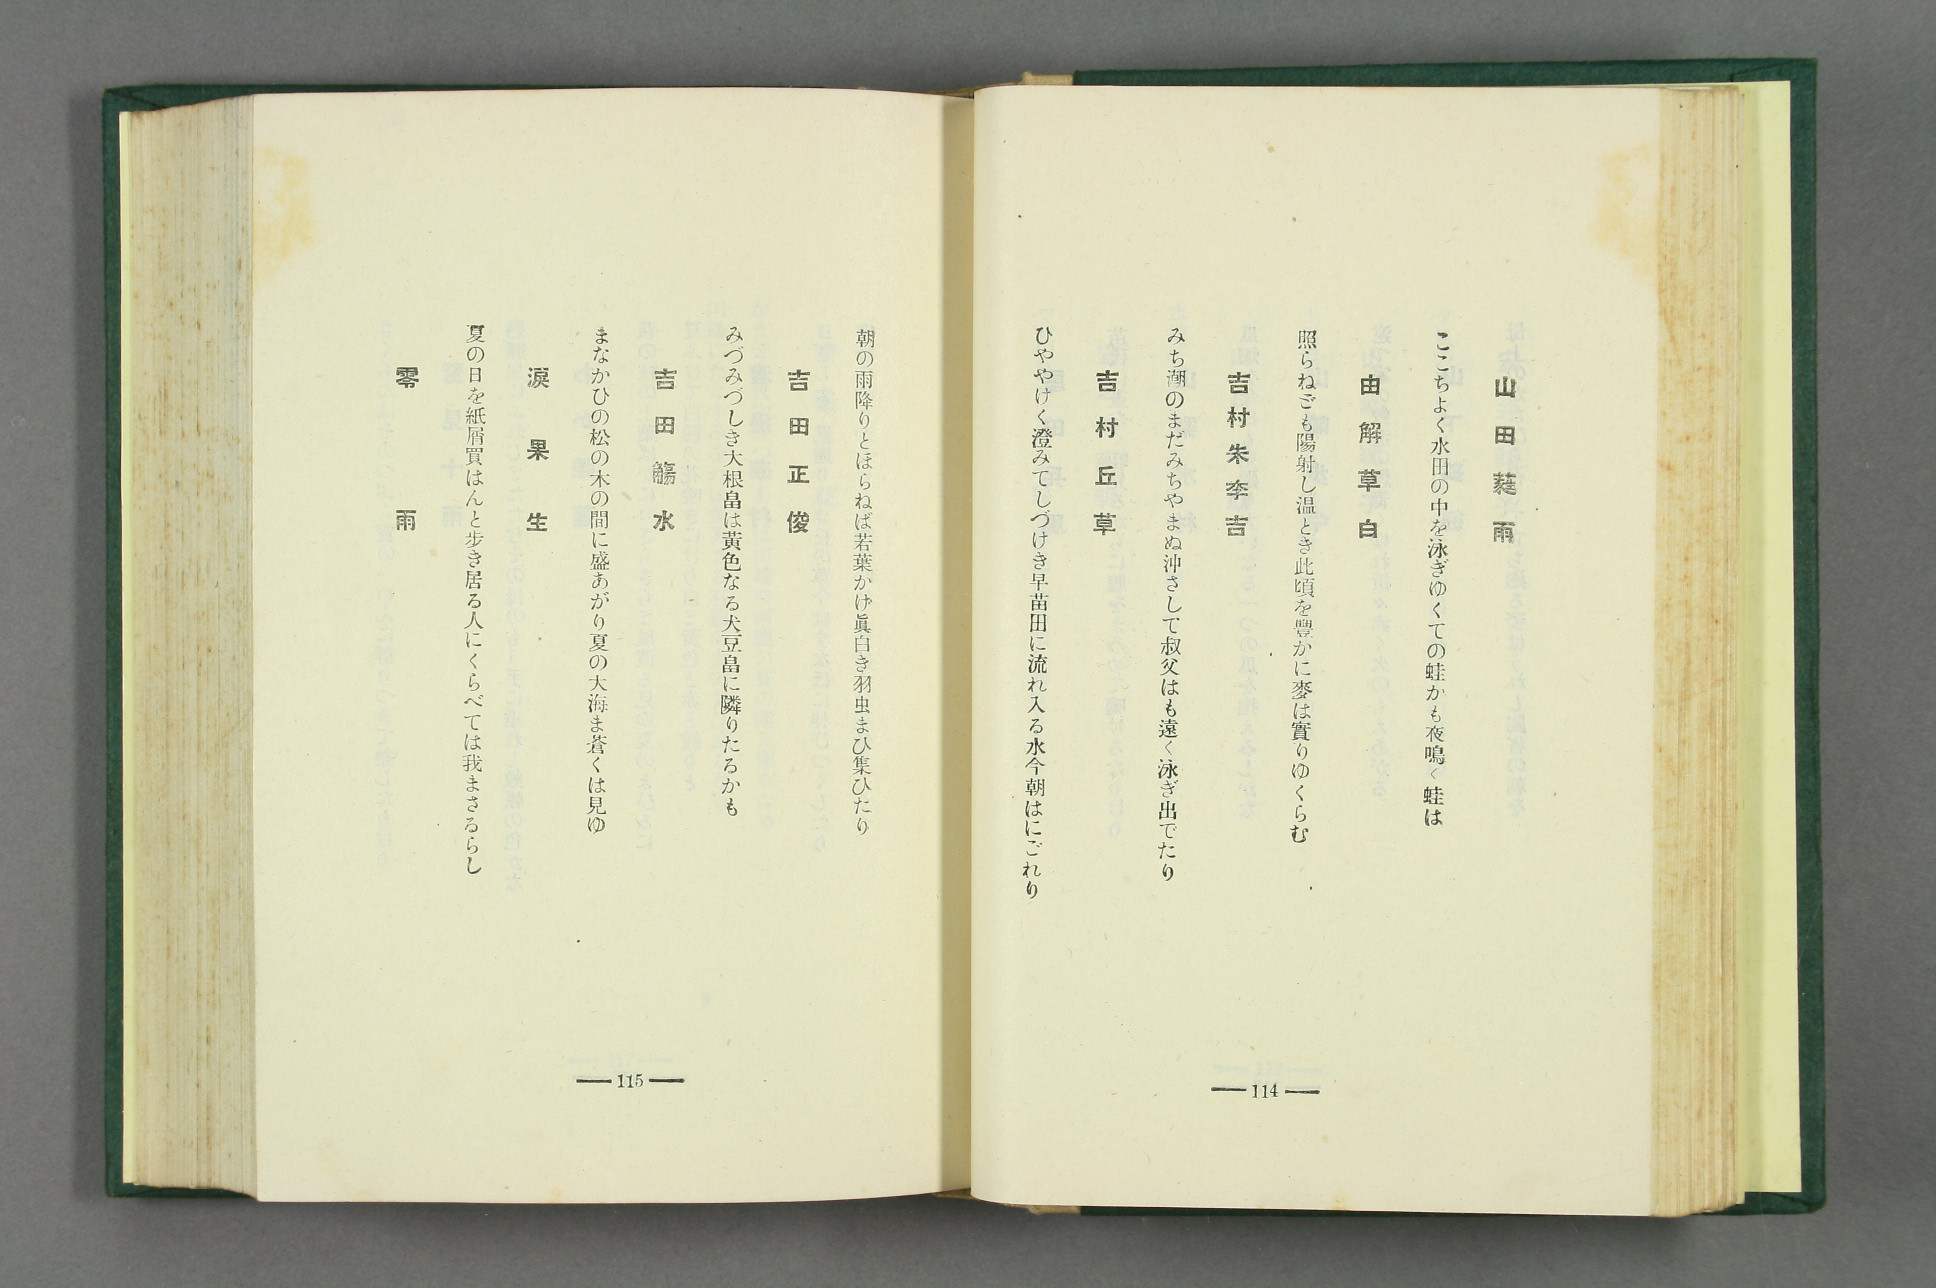 山田蕤雨
ここちよく水田の中を泳ぎゆくての蛙かも夜鳴く蛙は
由解草白
照らねども陽射し温とき此頃を豐かに麥は實りゆくらむ
吉村朱李吉
みち潮のまだみちやまぬ沖さして叔父はも遠く泳ぎ出でたり
吉村丘草
ひややけく澄みてしづけき早苗田に流れ入る水今朝はにごれり
— 114 —
朝の雨降りとほらねば若葉かげ眞白き羽虫まひ集ひたり
吉田正俊
みづみづしき大根畠は黄色なる犬豆畠に隣りたるかも
吉田觴水
まなかひの松の木の間に盛あがり夏の大海ま蒼くは見ゆ
涙果生
夏の日を紙屑買はんと歩き居る人にくらべては我まさるらし
零雨
— 115 —